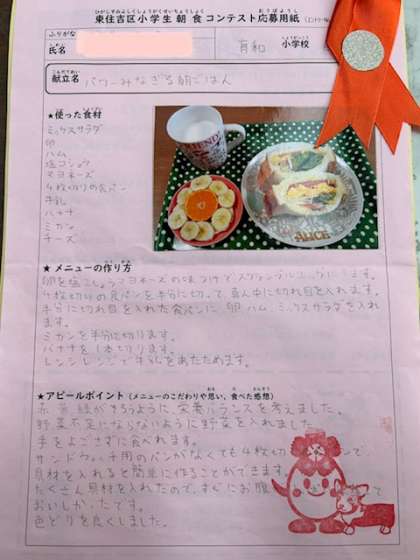 ひがしすみよしくしょうがくせいちょうしょく おうぼようし
東住吉区小学生 朝 食 コンテスト応募用紙
ふりがな
しめい
氏名 有和 しょうがっこう
小学校
こんだてめい
献立名 パワーみなぎる朝ごはん
★使った食材
ミックスサラダ
卵
ハム
塩コショウ
マヨネーズ
4枚切りの食パン
牛乳
バナナ
ミカン
チーズ
ALICE
★メニューの作り方
卵を塩こしょう、マヨネーズの味つけでスクランブルエッグにします。
4枚切りの食パンを半分に切って、真ん中に切れ目を入れます。
半分に切れ目を入れた食パンに、卵、ハム、ミックスサラダを入れ
ます。
ミカンを半分に切ります。
バナナを1本切ります。
レンジで牛乳をあたためます。
★アピールポイント(メニューのこだわりや思い、食べた感想)
赤、黄、緑がそろうように、栄養バランスを考えました。
野菜不足にならないように野菜を入れました。
手をよごさずに食べれます。
サンドウィッチ用のパンがなくても4枚切
具材を入れると簡単に作ることができます。
たくさん具材を入れたので、すぐにお腹
おいしかったです。
色どりを良くしました。